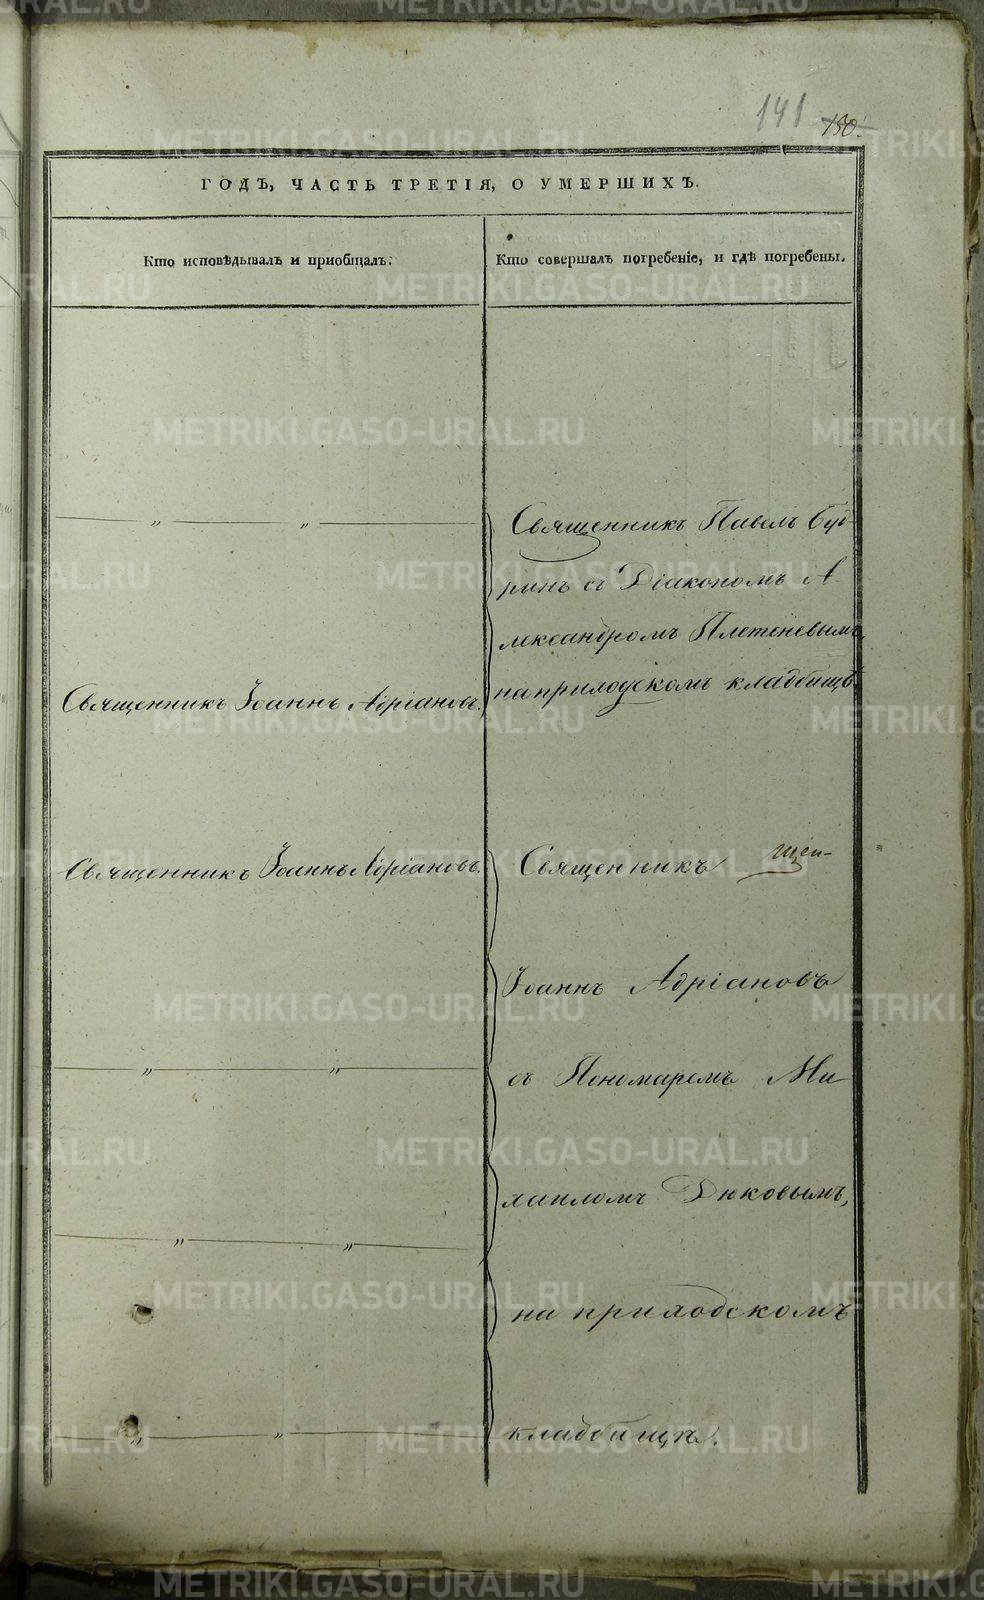 141 150.
ГОДЪ, ЧАСТЬ ТРЕТІЯ, О УМЕРШИХЪ.
Кто исповѣдывалъ и пріобщалъ.
Кто совершалъ погребеніе, и гдѣ погребены.
— „ — „ —
Священникъ Павелъ Бу
ринъ съ Діакономъ А
лександромъ Плетеневымъ
на приходскомъ кладбищѣ.
Священникъ Іоаннъ Адріановъ.
Священникъ Іоаннъ Адріановъ.
Священникъ
Іоаннъ Адріановъ
— „ — „ —
съ Пономаремъ Ми
хаиломъ Дюковымъ,
— „ — „ —
на приходскомъ
— „ — „ —
кладбищѣ.
METRIKI.GASO-URAL.RU